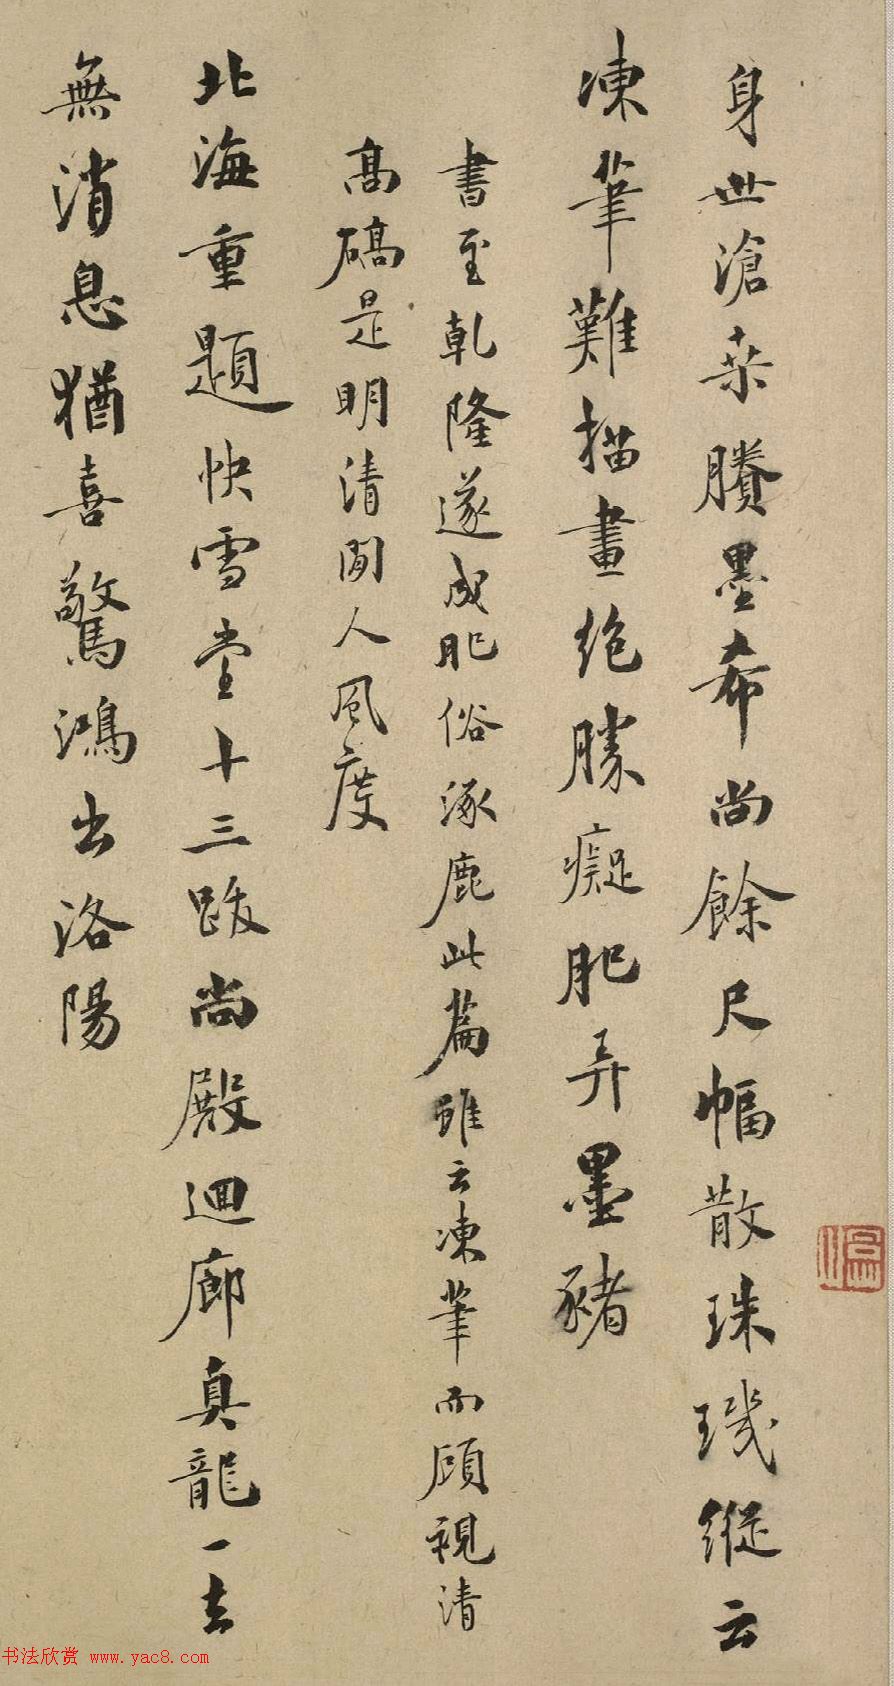 身世滄桑賸墨希尚餘尺幅散珠璣縱云
凍筆難描畫絶勝癡肥弄墨豬
書至乾隆遂成肥俗涿鹿此篇雖云凍筆而顧視清
高礄是明清間人風度
北海重題快雪堂十三跋尚殿迴廊真龍一去
無消息猶喜驚鴻出洛陽
书法欣赏 www.yac8.com